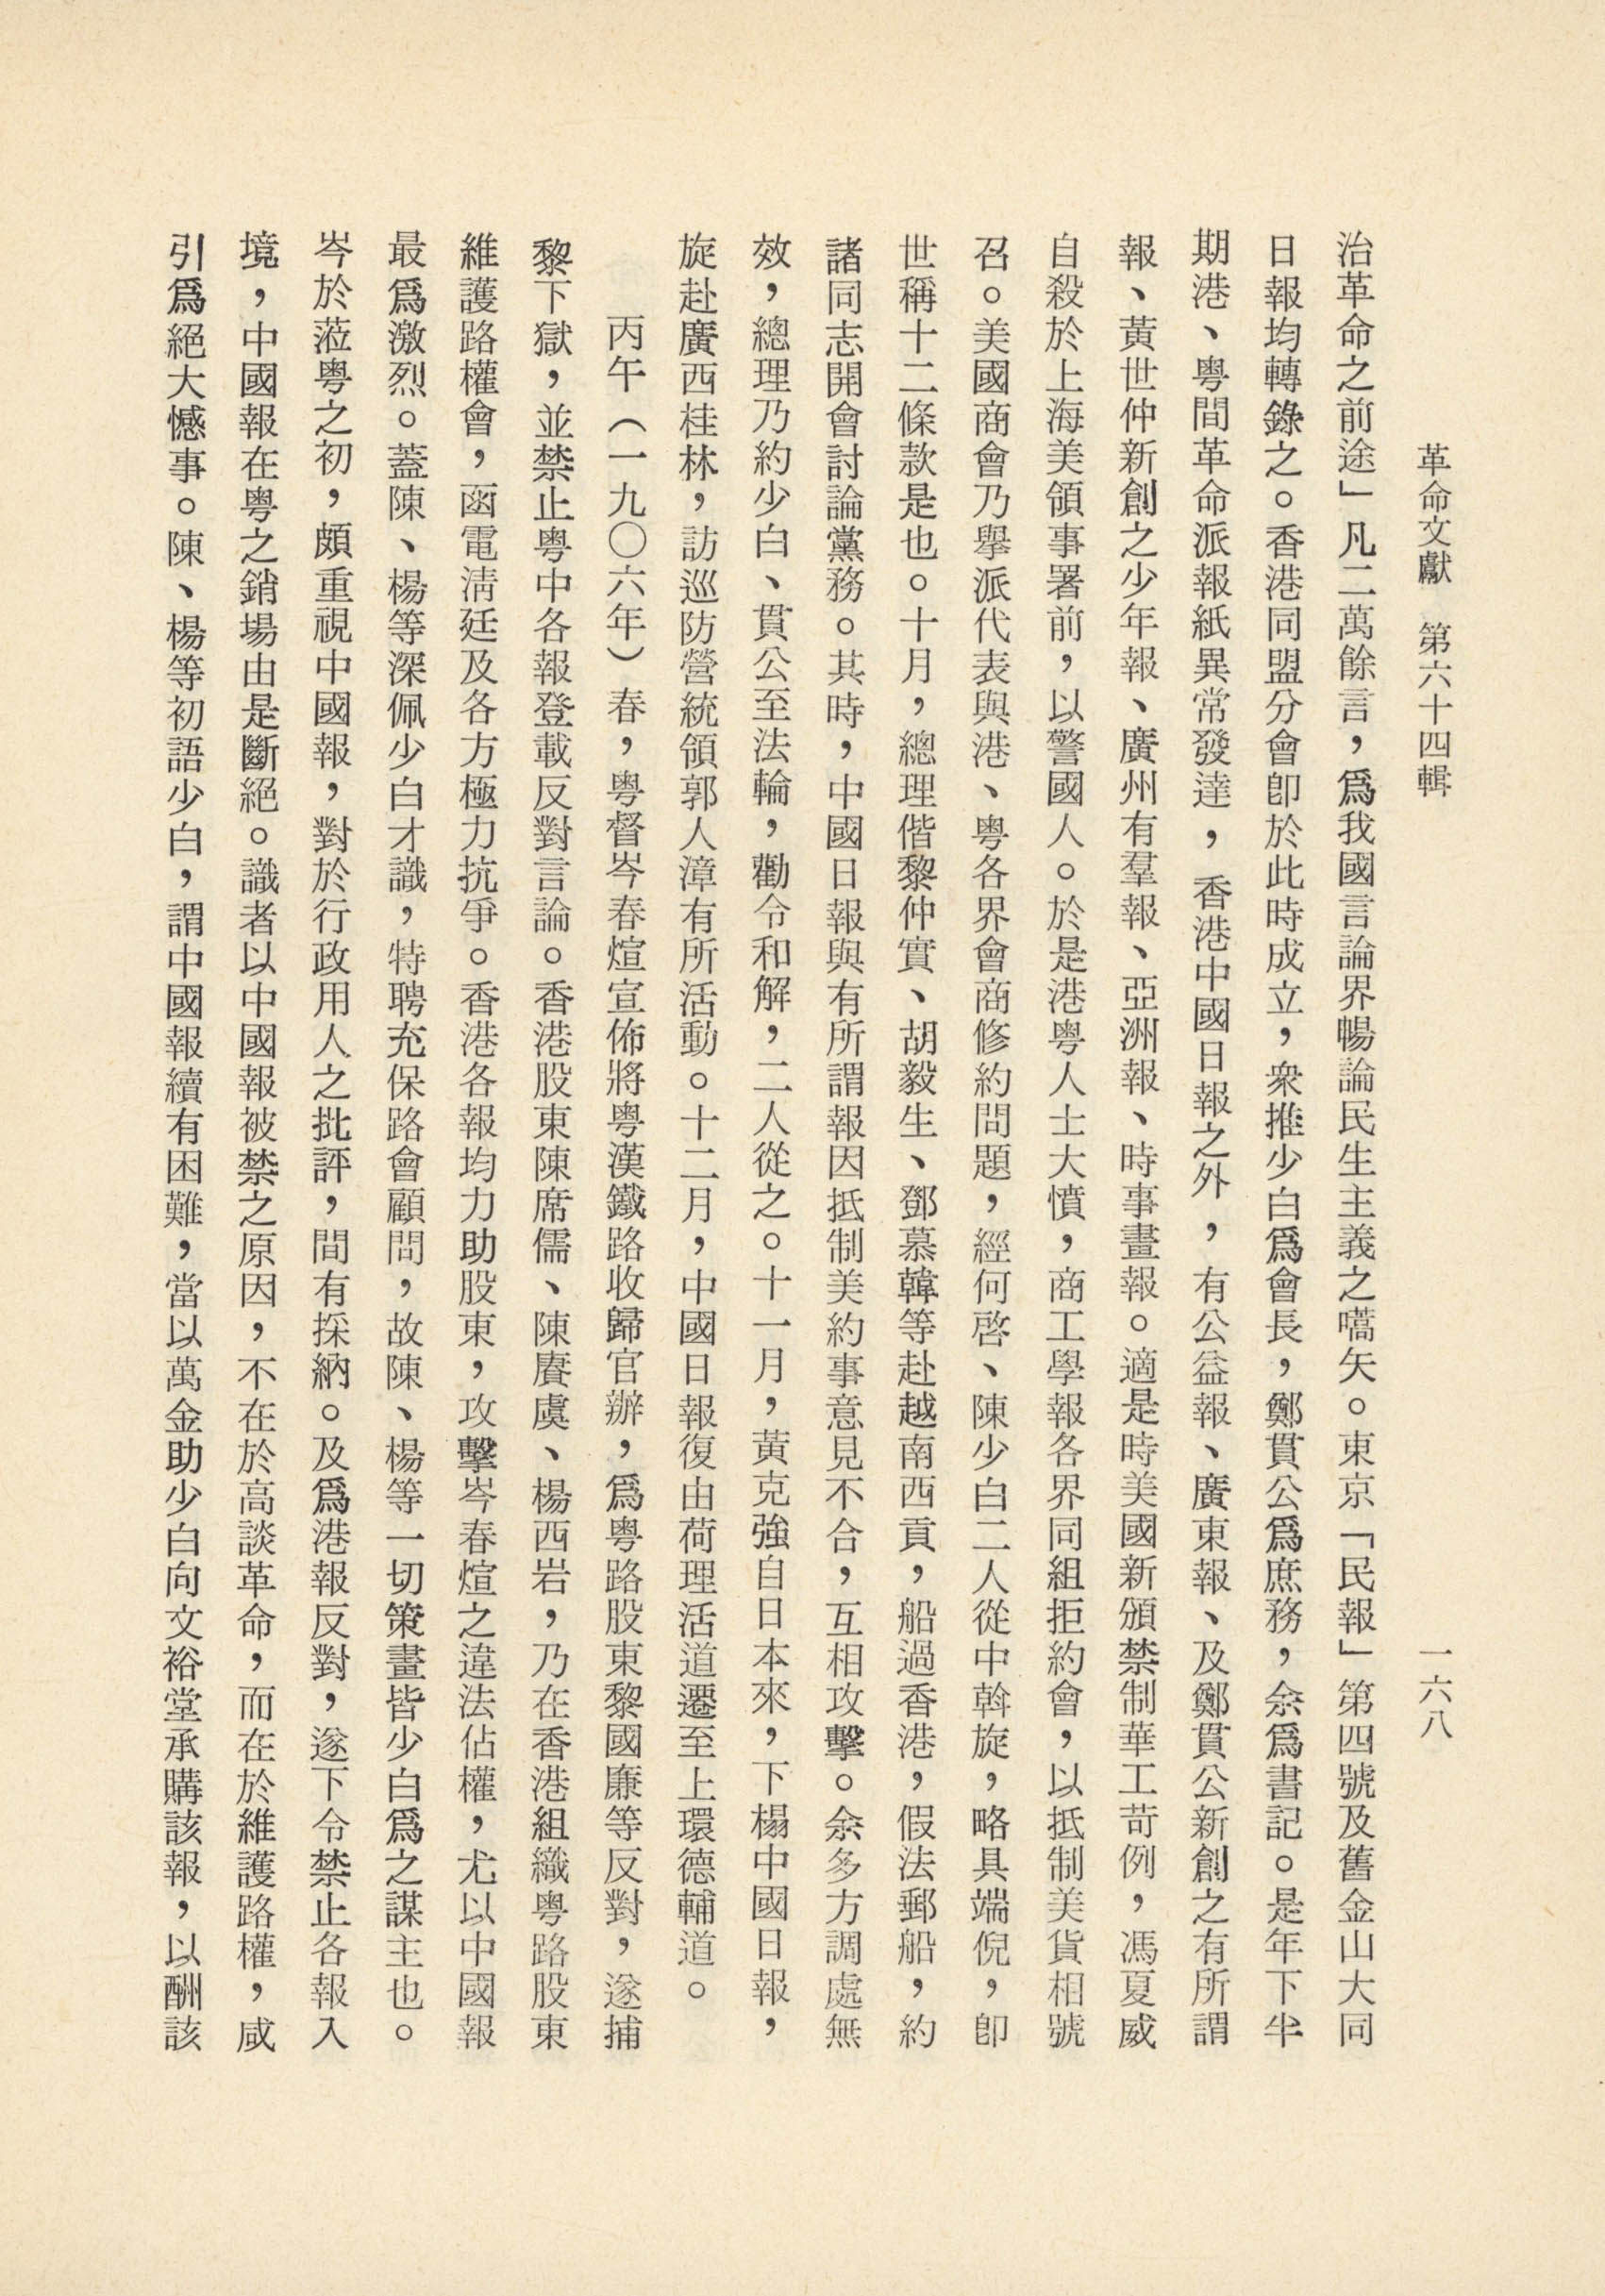 革命文獻　第六十四輯　一六八
治革命之前途」凡二萬餘言，爲我國言論界暢論民生主義之嚆矢。東京「民報」第四號及舊金山大同
日報均轉錄之。香港同盟分會卽於此時成立，衆推少白爲會長，鄭貫公爲庶務，余爲書記。是年下半
期港、粤間革命派報紙異常發達，香港中國日報之外，有公益報、廣東報、及鄭貫公新創之有所謂
報、黃世仲新創之少年報、廣州有羣報、亞洲報、時事畫報。適是時美國新頒禁制華工苛例，馮夏威
自殺於上海美領事署前，以警國人。於是港粤人士大憤，商工學報各界同組拒約會，以抵制美貨相號
召。美國商會乃舉派代表與港、粤各界會商修約問題，經何啓、陳少白二人從中斡旋，略具端倪，卽
世稱十二條款是也。十月，總理偕黎仲實、胡毅生、鄧慕韓等赴越南西貢，船過香港，假法郵船，約
諸同志開會討論黨務。其時，中國日報與有所謂報因抵制美約事意見不合，互相攻擊。余多方調處無
效，總理乃約少白、貫公至法輪，勸令和解，二人從之。十一月，黃克強自日本來，下榻中國日報，
旋赴廣西桂林，訪巡防營統領郭人漳有所活動。十二月，中國日報復由荷理活道遷至上環德輔道。
丙午（一九〇六年）春，粤督岑春煊宣佈將粤漢鐵路收歸官辦，爲粤路股東黎國廉等反對，遂捕
黎下獄，並禁止粤中各報登載反對言論。香港股東陳席儒、陳賡虞、楊西岩，乃在香港組織粤路股東
維護路權會，函電淸廷及各方極力抗爭。香港各報均力助股東，攻擊岑春煊之違法佔權，尤以中國報
最爲激烈。蓋陳、楊等深佩少白才識，特聘充保路會顧問，故陳、楊等一切策畫皆少白爲之謀主也。
岑於蒞粤之初，頗重視中國報，對於行政用人之批評，間有採納。及爲港報反對，遂下令禁止各報入
境，中國報在粤之銷場由是斷絕。識者以中國報被禁之原因，不在於高談革命，而在於維護路權，咸
引爲絕大憾事。陳、楊等初語少白，謂中國報續有困難，當以萬金助少白向文裕堂承購該報，以酬該